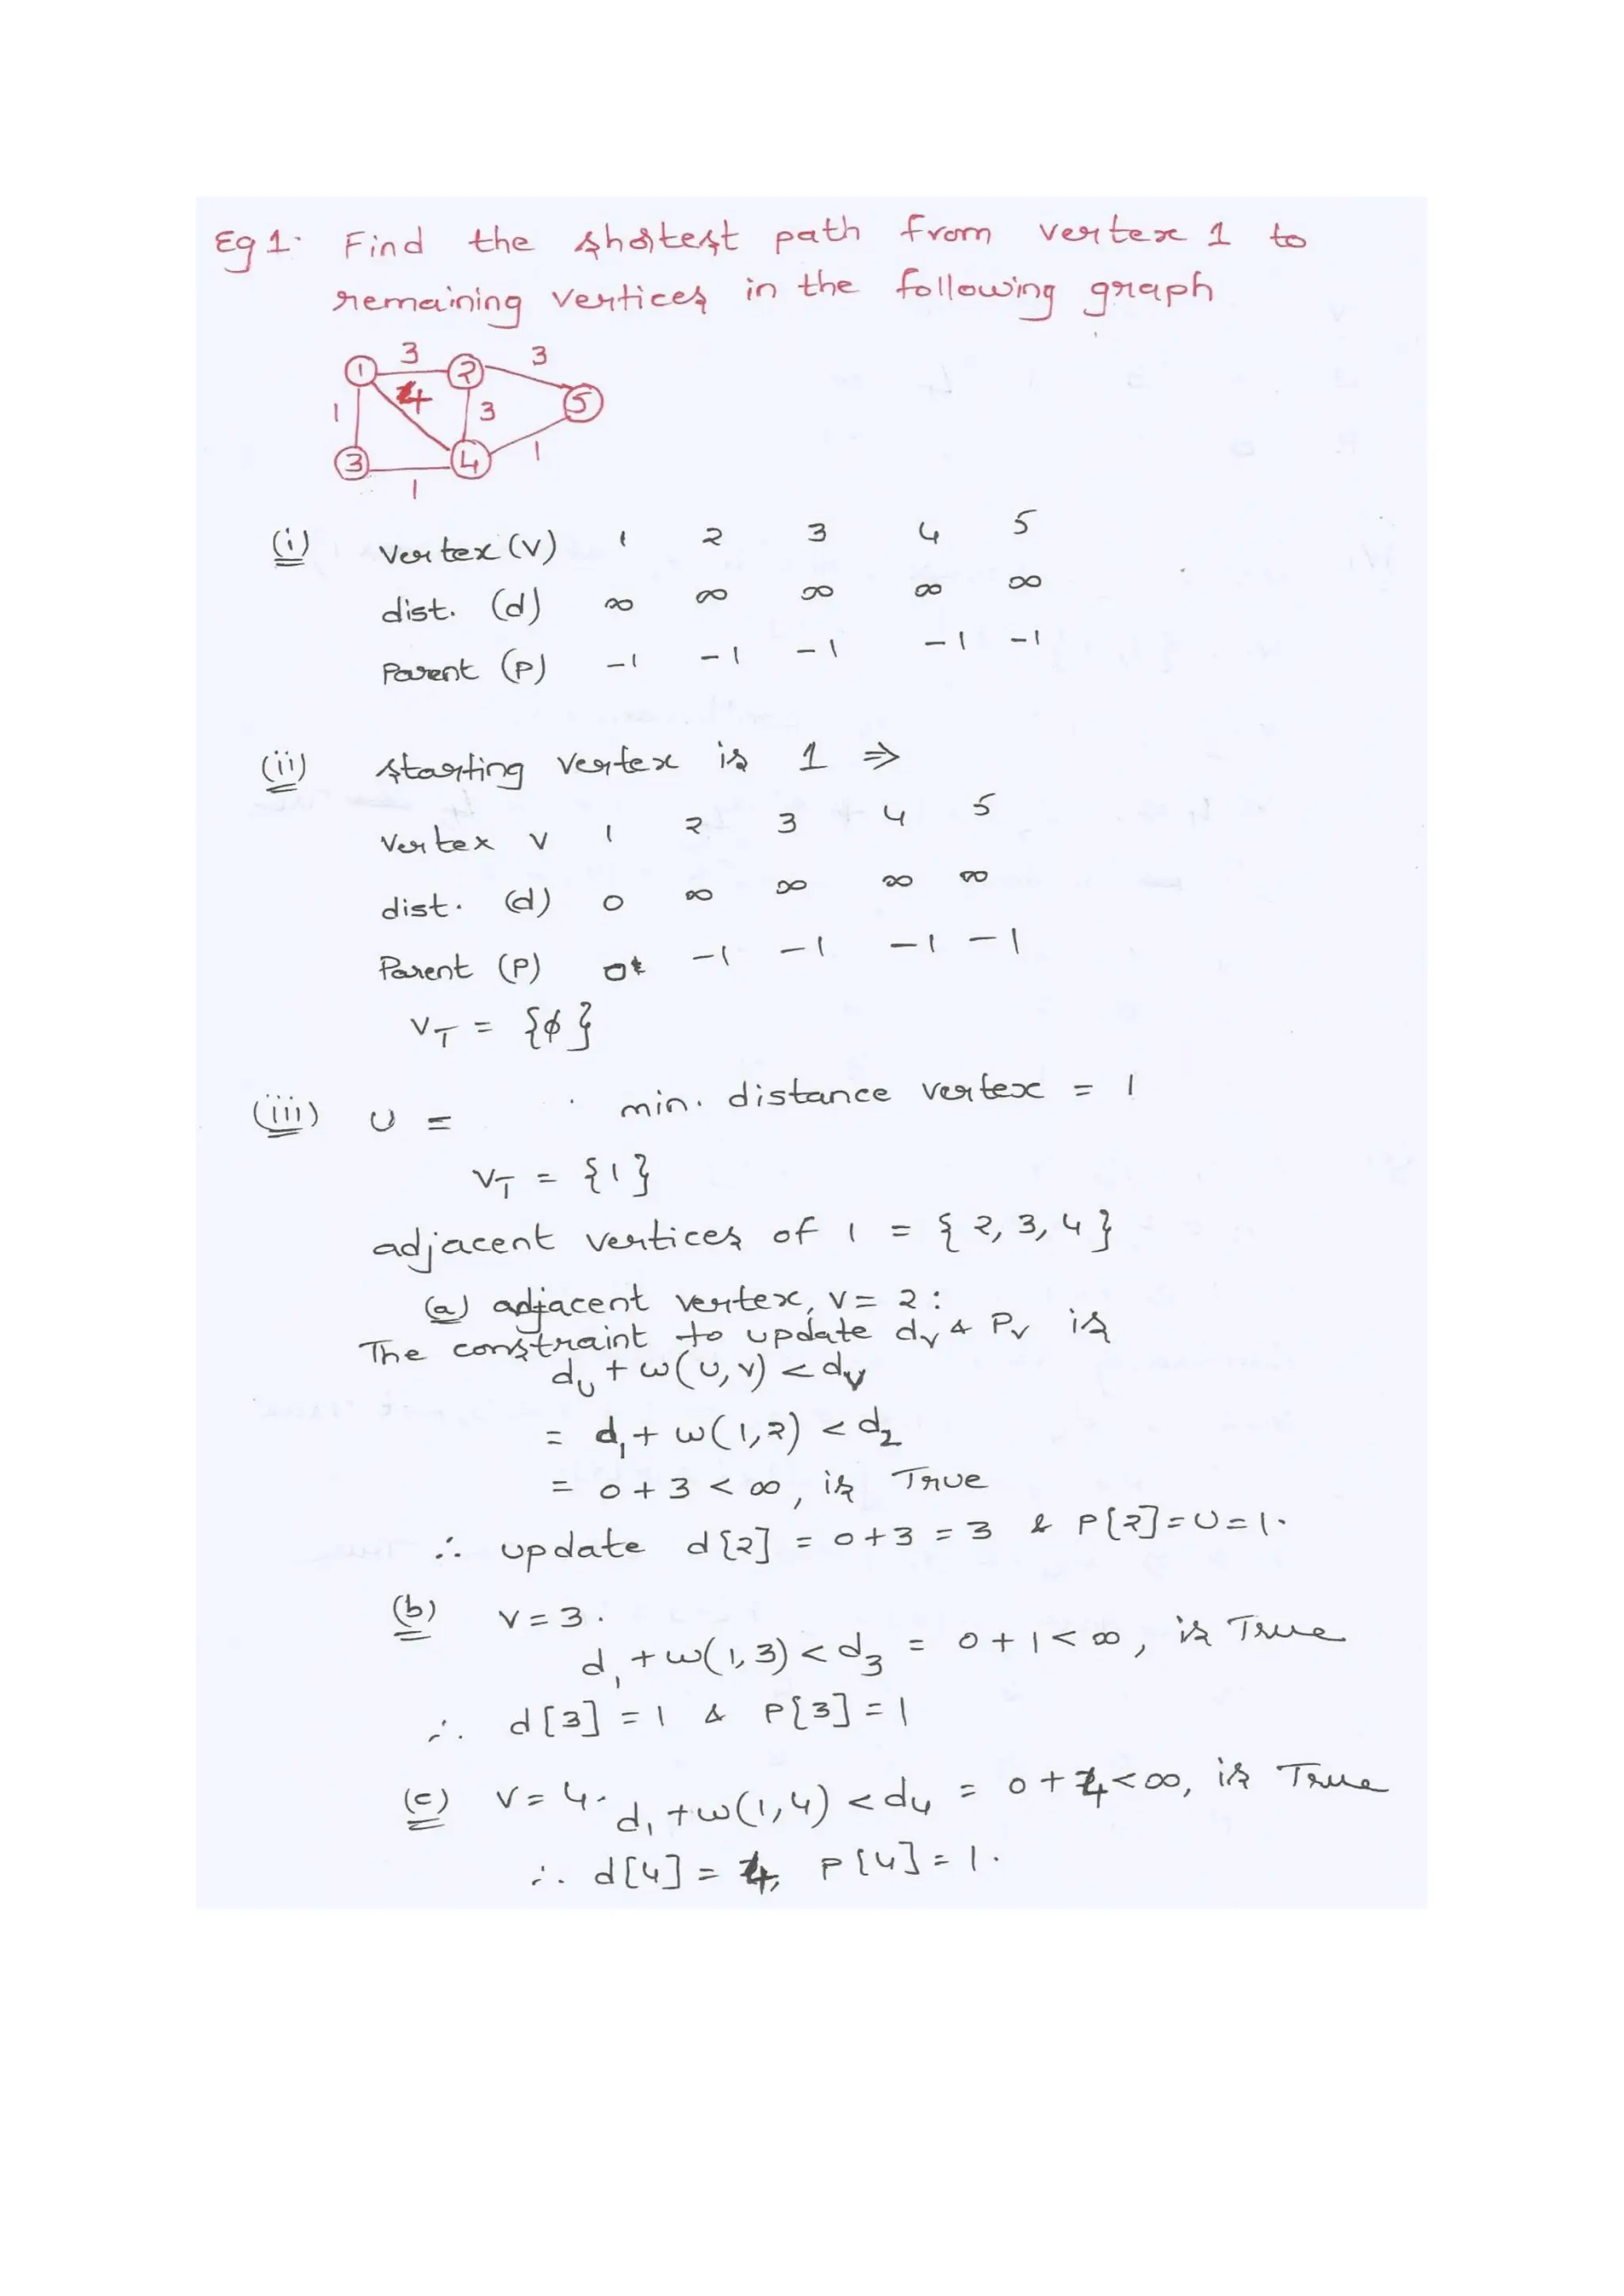 Eg 1. Find the shortest path from vertex 1 to
remaining vertices in the following graph
3 3
1 2
4
1 3 5
3 4 1
1
(i) vertex (v) 1 2 3 4 5
dist. (d) ∞ ∞ ∞ ∞ ∞
Parent (P) -1 -1 -1 -1 -1
(ii) starting vertex is 1 ⇒
vertex v 1 2 3 4 5
dist. (d) 0 ∞ ∞ ∞ ∞
Parent (P) 0 -1 -1 -1 -1
V_T = {ϕ}
(iii) U = min. distance vertex = 1
V_T = {1}
adjacent vertices of 1 = {2, 3, 4}
(a) adjacent vertex, v = 2:
The constraint to update d_v & P_v is
d_u + w(u, v) < d_v
= d_1 + w(1, 2) < d_2
= 0 + 3 < ∞, is True
∴ update d[2] = 0+3 = 3 & P[2] = U = 1.
(b) v = 3.
d_1 + w(1, 3) < d_3 = 0 + 1 < ∞, is True
∴ d[3] = 1 & P[3] = 1
(c) v = 4. d_1 + w(1, 4) < d_4 = 0 + 4 < ∞, is True
∴ d[4] = 4, P[4] = 1.